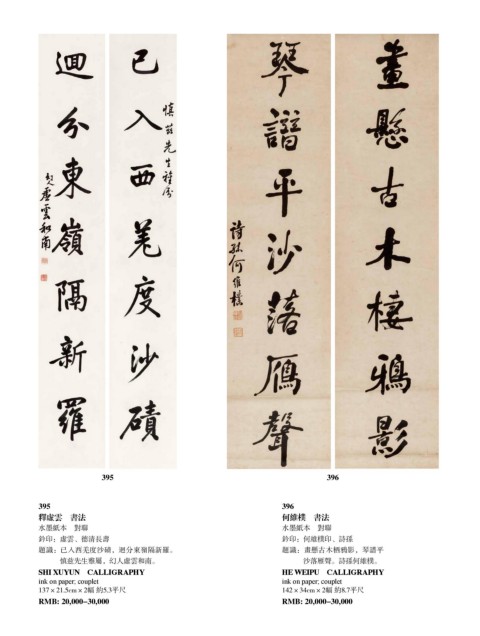 已入西羌度沙磧
慎茲先生雅屬
迴分東嶺隔新羅
幻人虛雲和南
畫懸古木棲鴉影
琴譜平沙落雁聲
詩孫何維樸
395
396
395
釋虛雲 書法
水墨紙本 對聯
鈐印：虛雲、德清長壽
題識：已入西羌度沙磧，迴分東嶺隔新羅。
慎茲先生雅屬，幻人虛雲和南。
SHI XUYUN CALLIGRAPHY
ink on paper; couplet
137×21.5cm×2幅 約5.3平尺
RMB: 20,000–30,000
396
何維樸 書法
水墨紙本 對聯
鈐印：何維樸印、詩孫
題識：畫懸古木栖鴉影，琴譜平
沙落雁聲。詩孫何維樸。
HE WEIPU CALLIGRAPHY
ink on paper; couplet
142×34cm×2幅 約8.7平尺
RMB: 20,000–30,000